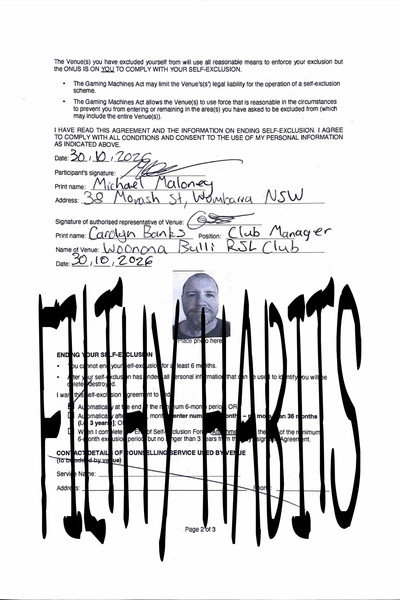 The Venue(s) you have excluded yourself from will use all reasonable means to enforce your exclusion but
the ONUS IS ON YOU TO COMPLY WITH YOUR SELF-EXCLUSION.
• The Gaming Machines Act may limit the Venue's(s') legal liability for the operation of a self-exclusion
scheme.
• The Gaming Machines Act allows the Venue(s) to use force that is reasonable in the circumstances
to prevent you from entering or remaining in the area(s) you have asked to be excluded from (which
may include the entire Venue(s)).
I HAVE READ THIS AGREEMENT AND THE INFORMATION ON ENDING SELF-EXCLUSION. I AGREE
TO COMPLY WITH ALL CONDITIONS AND CONSENT TO THE USE OF MY PERSONAL INFORMATION
AS INDICATED ABOVE.
Date: 30,10,2026
Participant's signature:
Print name: Michael Maloney
Address: 38 Morash St, Wombarra NSW
Signature of authorised representative of Venue:
Print name: Carolyn Banks Position: Club Manager
Name of Venue: Woonona Bulli RSL Club
Date: 30,10,2026
Place photo here
FILTHY HABITS
ENDING YOUR SELF-EXCLUSION
You cannot end your self-exclusion for at least 6 months.
self-exclusion has ended, all personal information that can be used to identify you will
destroyed.
I want this self-exclusion agreement to end:
Automatically at the end of the minimum 6-month period; OR
Automatically after enter number months – no more than 36 months
(i.e. 3 years)
When I complete End of Self-Exclusion Form of the minimum
6-month exclusion period but no longer than 3 years from Agreement.
CONTACT DETAILS OF COUNSELLING SERVICE USED BY VENUE
(to be added by venue)
Service Name:
Address: Phone:
Page 2 of 3